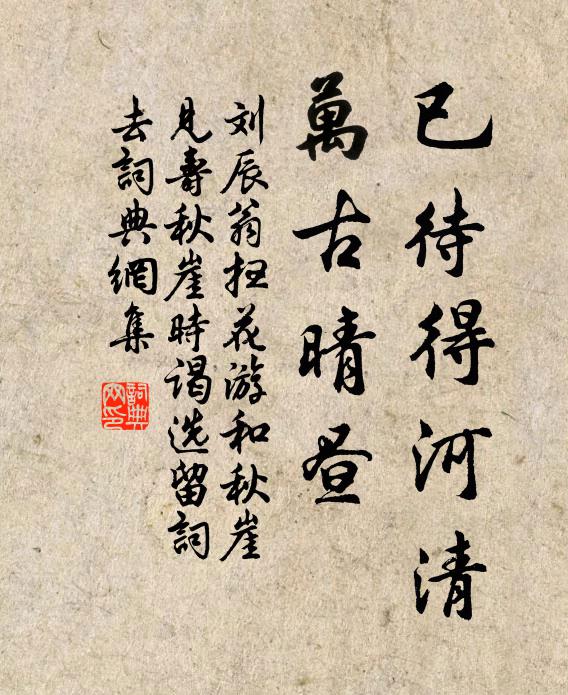 已待得河清
萬古晴昼
刘辰翁扭花游和秋崖
見壽秋崖時谒选留詞
去詞典網集
詞典
网印